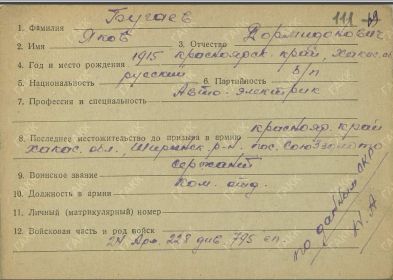 111
Бугаев
1. Фамилия
Яков Дормидонович
2. Имя 3. Отчество
1915 Красноярск. край, Хакас. об.
4. Год и место рождения
русский б/п
5. Национальность 6. Партийность
Авто-электрик
7. Профессия и специальность
Краснояр. край
8. Последнее местожительство до призыва в армию
Хакас. обл., Ширинск. р-н. пос. Союззолото
сержант
9. Воинское звание
Ком. отд.
10. Должность в армии
11. Личный (матрикулярный) номер
12. Войсковая часть и род войск
24 Арм. 228 див. 795 сп.
по данным